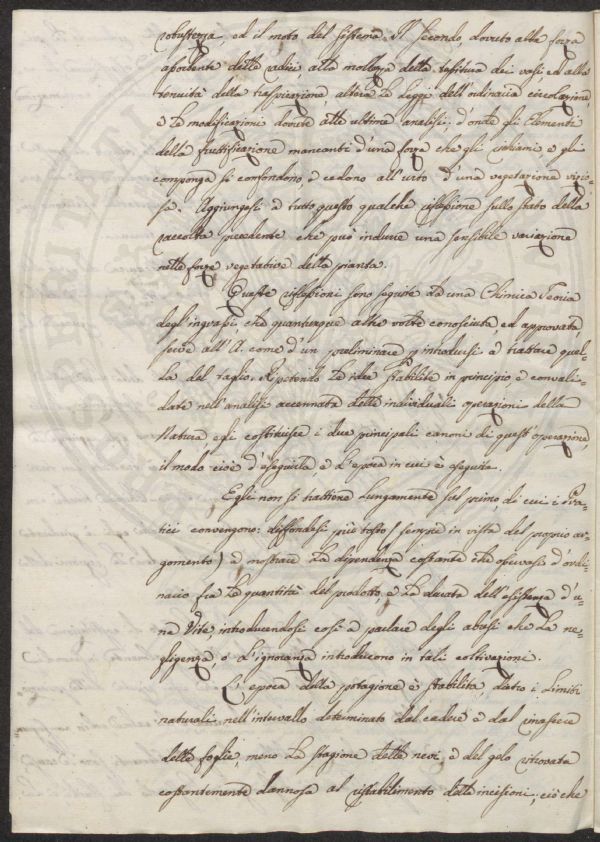 robustezza, ed il moto del sistema. Il secondo, dovuto alla forza
assorbente delle radici, alla mollezza della tessitura dei vasi, ed alla
tenuità della traspirazione, altera le leggi dell'ordinaria circolazione,
e le modificazioni dovute alle ultime analisi: d'onde gli Elementi
della fruttificazione mancanti d'una forza che gli richiami e gli
componga si confondono, e cedono all'urto d'una vegetazione vizio=
sa. Aggiungasi a tutto questo qualche riflessione sullo stato della
raccolta precedente che può indurre una sensibile variazione
nelle forze vegetative della pianta.
Queste riflessioni sono seguite da una Chimica Teoria
degl'ingrassi, che quantunque altre volte conosciuta, ed approvata,
serve all'A. come d'un preliminare p introdursi a trattare quel=
la del taglio. Ripetendo le idee stabilite in principio, e convali=
date nell'analisi accennata delle individuali operazioni della
Natura egli costituisce i due principali canoni di quest'operazione,
il modo cioè d'eseguirla, e l'epoca in cui è eseguita.
Egli non si trattiene lungamente sul primo, di cui i Pra=
tici convengono: diffondesi più tosto (sempre in vista del proprio ar=
gomento) a mostrare la dipendenza costante che osservasi d'ordi=
nario fra la quantità del prodotto, e la durata dell'esistenza d'u=
na Vite introducendosi così a parlare degli abusi che la ne=
gligenza o l'ignoranza introducono in tali coltivazioni.
L'epoca della potagione è stabilita, dietro i limiti
naturali, nell'intervallo determinato dal cadere e dal rinascere
delle foglie meno la stagione delle nevi, e del gelo ritrovata
costantemente dannosa al ristabilimento delle incisioni; ciò che